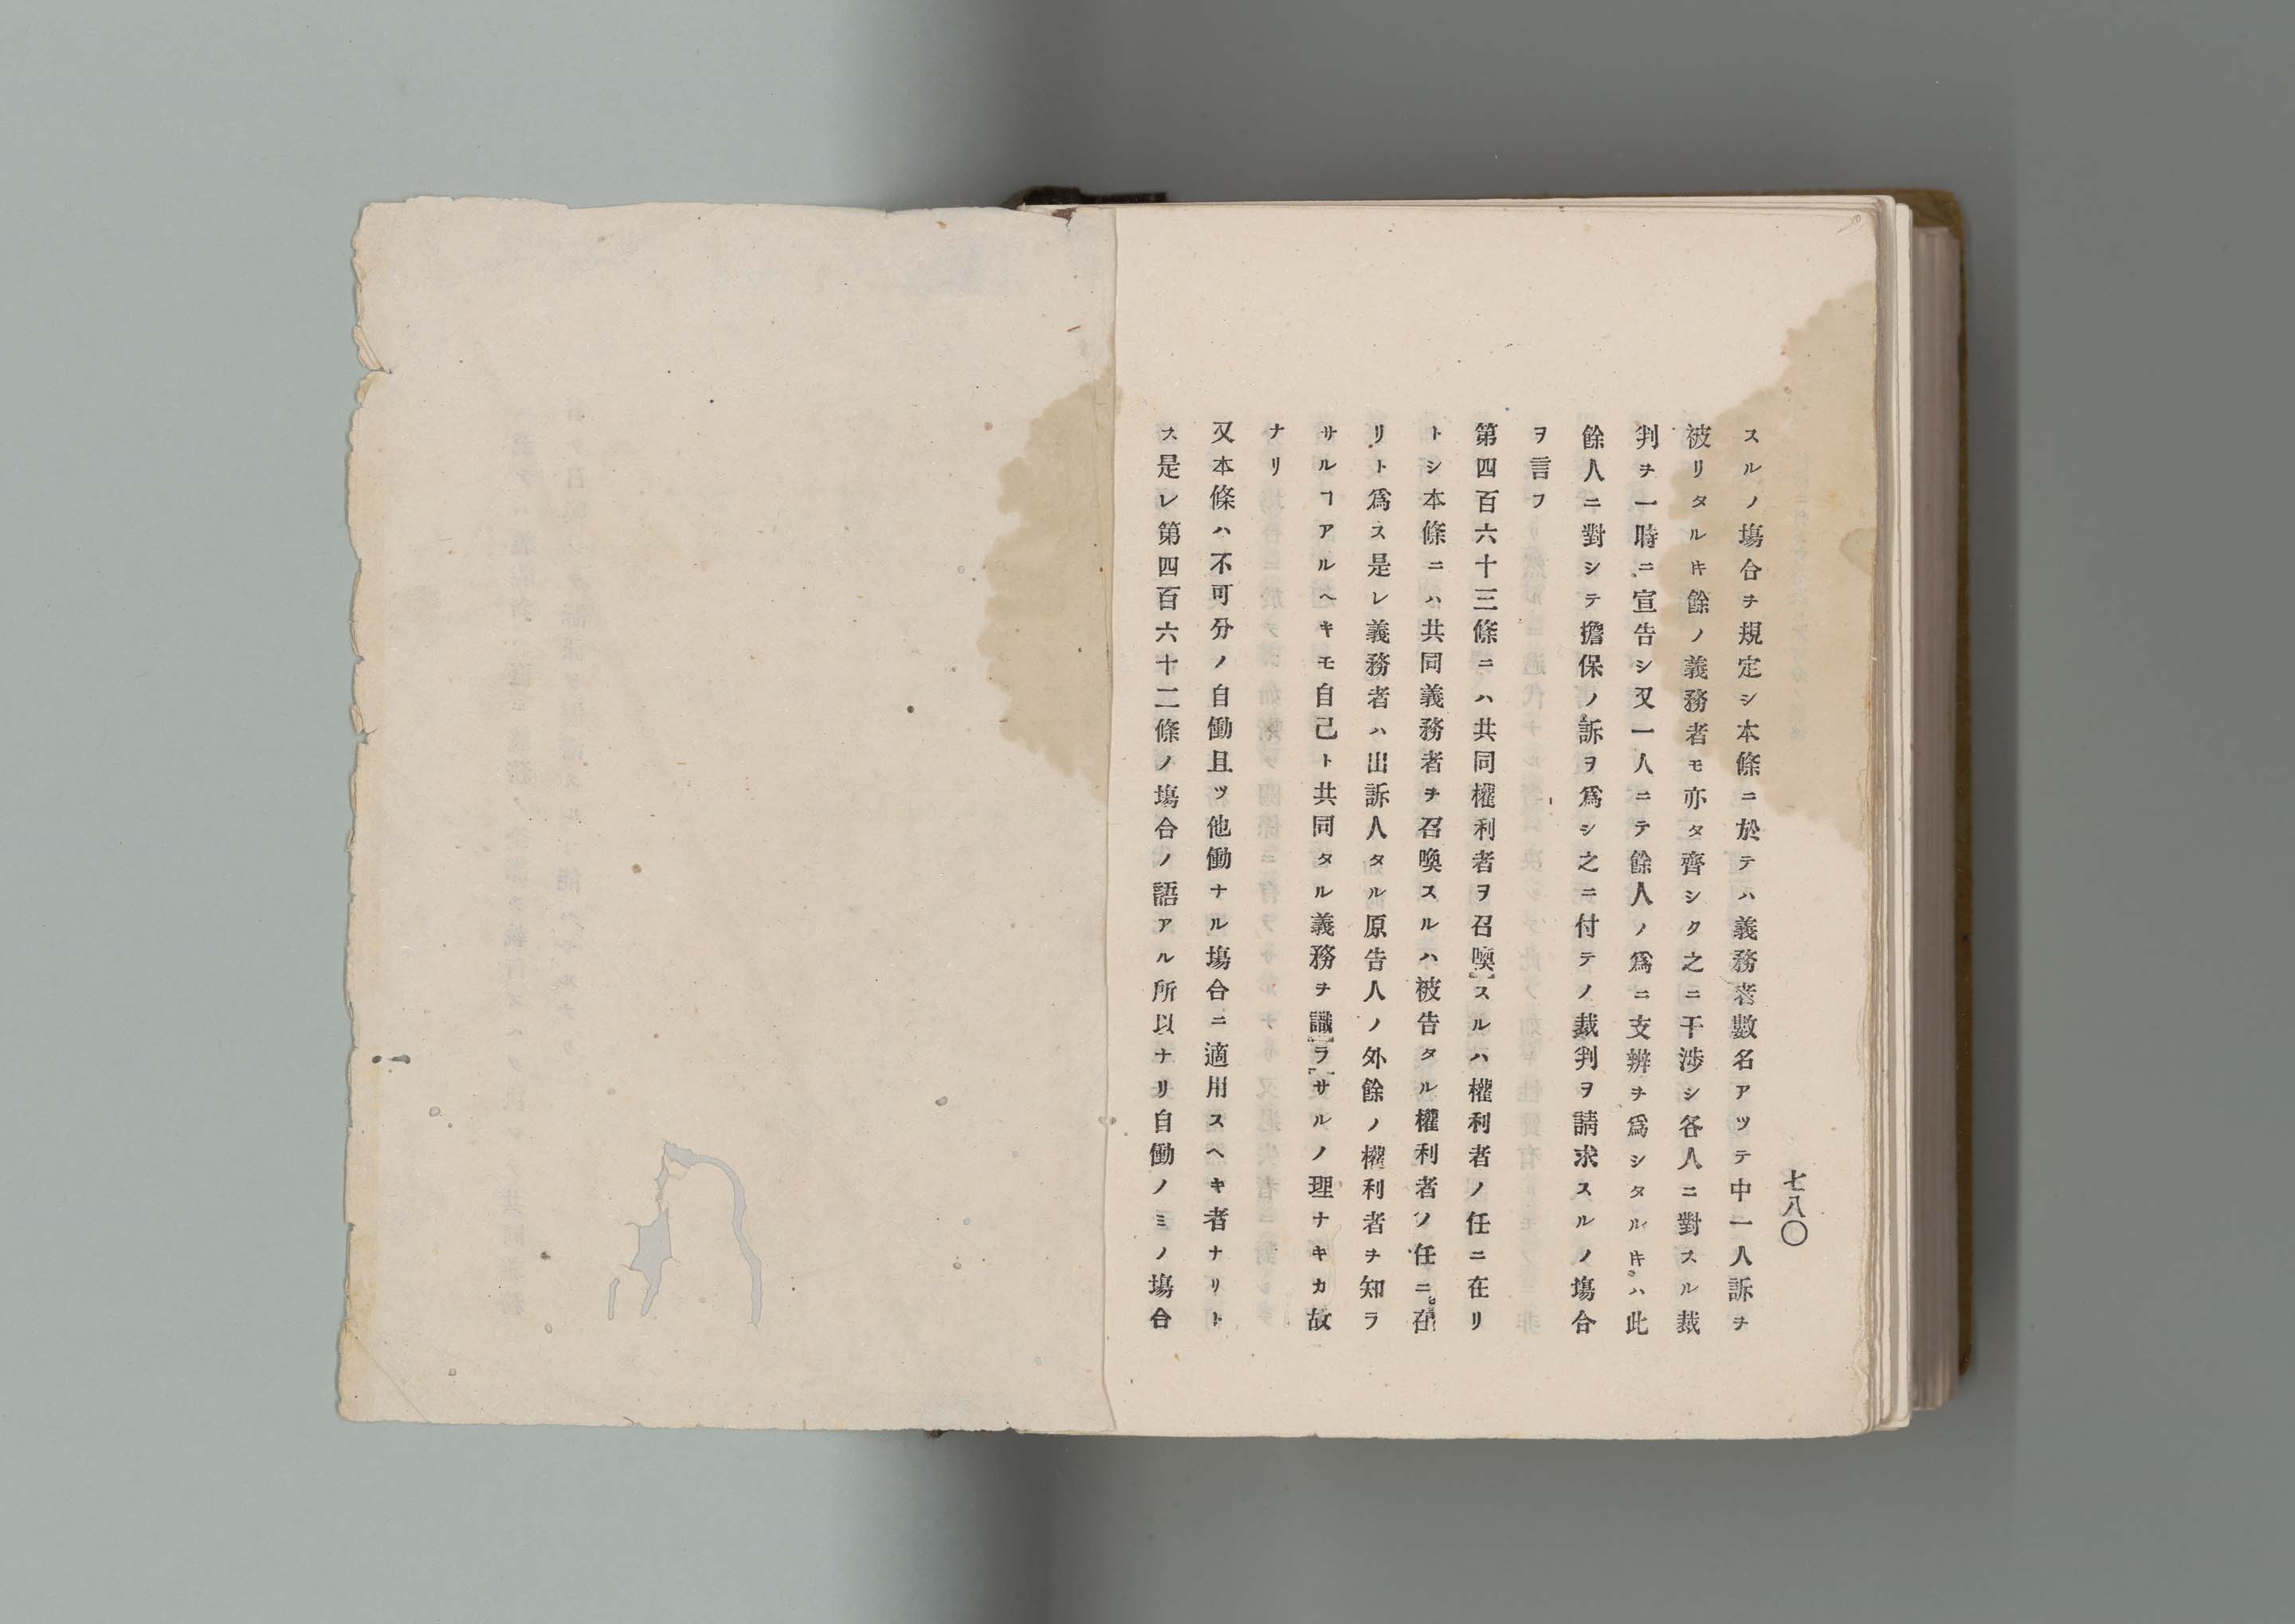 七八〇
スルノ塲合ヲ規定シ本條ニ於テハ義務者數名アツテ中一人訴ヲ
被リタルキ餘ノ義務者モ亦タ齊シク之ニ干涉シ各人ニ對スル裁
判ヲ一時ニ宣告シ又一人ニテ餘人ノ爲ニ支辨ヲ爲シタルキハ此
餘人ニ對シテ擔保ノ訴ヲ爲シ之ニ付テノ裁判ヲ請求スルノ塲合
ヲ言フ
第四百六十三條ニハ共同權利者ヲ召喚スルハ權利者ノ任ニ在リ
トシ本條ニハ共同義務者ヲ召喚スルハ被告タル權利者ノ任ニ在
リト爲ス是レ義務者ハ出訴人タル原告人ノ外餘ノ權利者ヲ知ラ
サルヿアルヘキモ自己ト共同タル義務ヲ識ラサルノ理ナキカ故
ナリ
又本條ハ不可分ノ自働且ツ他働ナル塲合ニ適用スヘキ者ナリト
ス是レ第四百六十二條ノ塲合ノ語アル所以ナリ自働ノミノ塲合